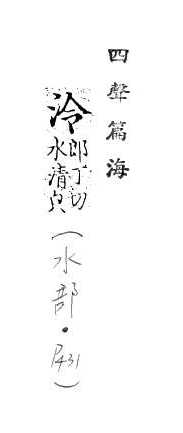 四聲篇海
泠
郎丁切
水清皃
(水部·P431)